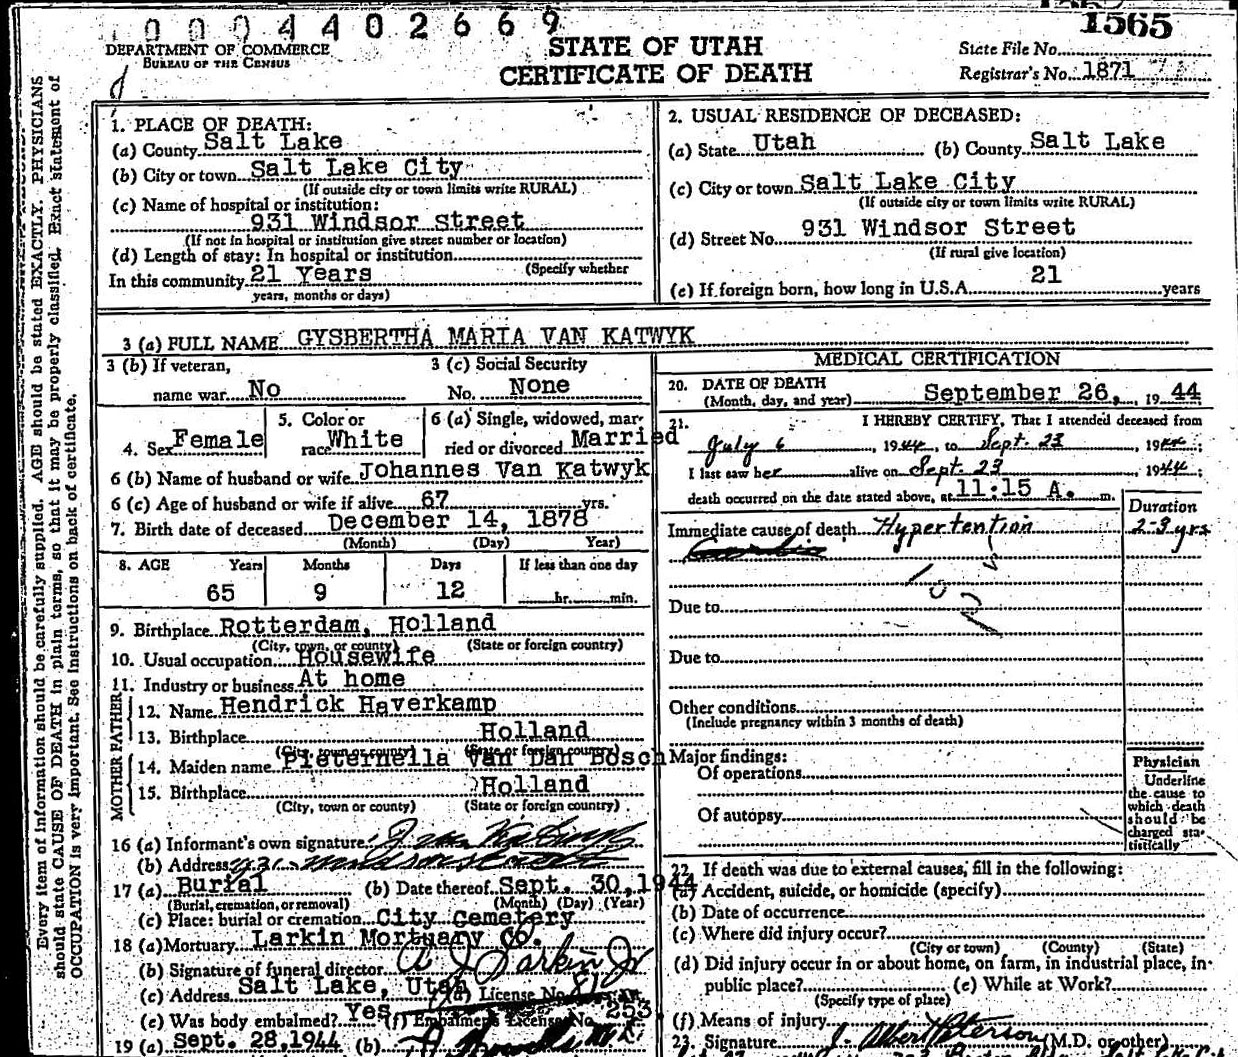 0004402669
1565
DEPARTMENT OF COMMERCE
BUREAU OF THE CENSUS
STATE OF UTAH
CERTIFICATE OF DEATH
State File No.
Registrar's No. 1871
Every item of information should be carefully supplied. AGE should be stated EXACTLY. PHYSICIANS
should state CAUSE OF DEATH in plain terms, so that it may be properly classified. Exact statement of
OCCUPATION is very important. See instructions on back of certificate.
1. PLACE OF DEATH:
(a) County Salt Lake
(b) City or town Salt Lake City
(If outside city or town limits write RURAL)
(c) Name of hospital or institution:
931 Windsor Street
(If not in hospital or institution give street number or location)
(d) Length of stay: In hospital or institution
(Specify whether
In this community 21 Years
years, months or days)
2. USUAL RESIDENCE OF DECEASED:
(a) State Utah (b) County Salt Lake
(c) City or town Salt Lake City
(If outside city or town limits write RURAL)
(d) Street No. 931 Windsor Street
(If rural give location)
(e) If foreign born, how long in U.S.A. 21 years
3 (a) FULL NAME GYSBERTHA MARIA VAN KATWYK
3 (b) If veteran,
name war No
3 (c) Social Security
No. None
4. Sex Female
5. Color or
race White
6 (a) Single, widowed, mar-
ried or divorced Married
6 (b) Name of husband or wife Johannes Van Katwyk
6 (c) Age of husband or wife if alive 67 yrs.
7. Birth date of deceased December 14, 1878
(Month) (Day) Year)
8. AGE Years Months Days If less than one day
65 9 12 hr. min.
9. Birthplace Rotterdam, Holland
(City, town, or county) (State or foreign country)
10. Usual occupation Housewife
11. Industry or business At home
FATHER
12. Name Hendrick Haverkamp
13. Birthplace Holland
(City, town or county) (State or foreign country)
MOTHER
14. Maiden name Pieternella Van Dan Bosch
15. Birthplace Holland
(City, town or county) (State or foreign country)
16 (a) Informant's own signature
(b) Address
17 (a) Burial (b) Date thereof Sept. 30, 1944
(Burial, cremation, or removal) (Month) (Day) (Year)
(c) Place: burial or cremation City Cemetery
18 (a) Mortuary Larkin Mortuary Co.
(b) Signature of funeral director A J Larkin Jr
(c) Address Salt Lake, Utah (d) License No.
(e) Was body embalmed? Yes (f) Embalmer's License No. 253
19 (a) Sept. 28, 1944 (b)
MEDICAL CERTIFICATION
20. DATE OF DEATH
(Month, day, and year) September 26, 1944
21. I HEREBY CERTIFY, That I attended deceased from
July 6, 1944, to Sept. 23, 1944;
I last saw her alive on Sept. 23, 1944;
death occurred on the date stated above, at 11:15 A. m.
Duration
Immediate cause of death Hypertention 2-3 yrs
Due to
Due to
Other conditions
(Include pregnancy within 3 months of death)
Major findings:
Of operations
Of autopsy
Physician
Underline
the cause to
which death
should be
charged sta-
tistically
22. If death was due to external causes, fill in the following:
(a) Accident, suicide, or homicide (specify)
(b) Date of occurrence
(c) Where did injury occur?
(City or town) (County) (State)
(d) Did injury occur in or about home, on farm, in industrial place, in
public place? (e) While at Work?
(Specify type of place)
(f) Means of injury
23. Signature J. Albert Peterson (M.D. or other)